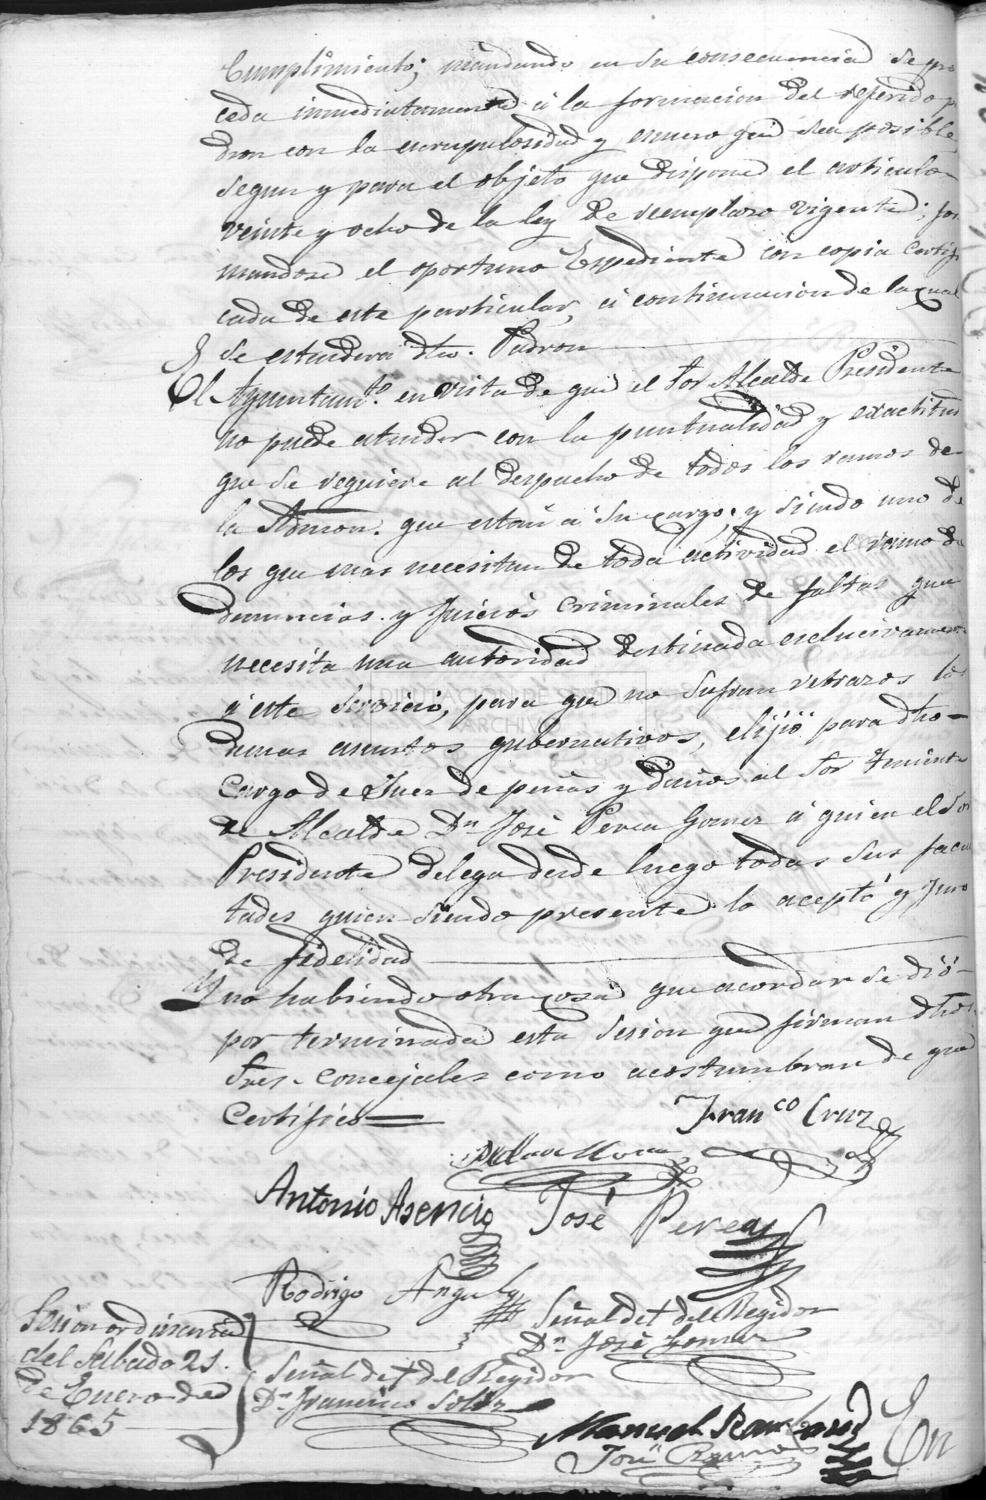 Cumplimiento; mandando en su consecuencia se pro
ceda inmediatamente á la formacion del referido p
dron con la escrupulosidad y esmero que sea posible
segun y para el objeto que dispone el articulo
veinte y ocho de la ley de reemplazo vigente; for
mandose el oportuno Espediente con copia certifi
cada de este particular, á continuacion de la cual
se estenderá dho. Padron
El Ayuntamto. en vista de que el Sor Alcalde Presidente
no puede atender con la puntualidad y exactitud
que se requiere al despacho de todos los ramos de
la Admon. que estan á su cargo, y siendo uno de
los que mas necesitan de toda actividad el ramo de
denuncias y Juicios criminales de faltas que
necesita una autoridad destinada esclucivamen
á este servicio, para que no sufran retrazos lo
demas asuntos gubernativos, elijió para dho
cargo de Juez de penas y daños al Sor Teniente
de Alcalde Dn José Perea Gomez á quien el Sor
Presidente delega desde luego todas sus facul
tades quien siendo presente lo aceptó y juró
de fidelidad
Y no habiendo otra cosa que acordar se dió
por terminada esta sesion que firman dhos
Sres. Concejales como acostumbran de que
Certifico
Franco Cruz
Antonio Asencio José Perea
Rodrigo Angulo
Señal de † del Regidor
Dn José Gomez
Señal de † del Regidor
Dn Francisco Soler
Manuel
José Ramos
Sesion ordinaria
del Sabado 21
de Enero de
1865
En
DIPUTACION DE
ARCHIVO